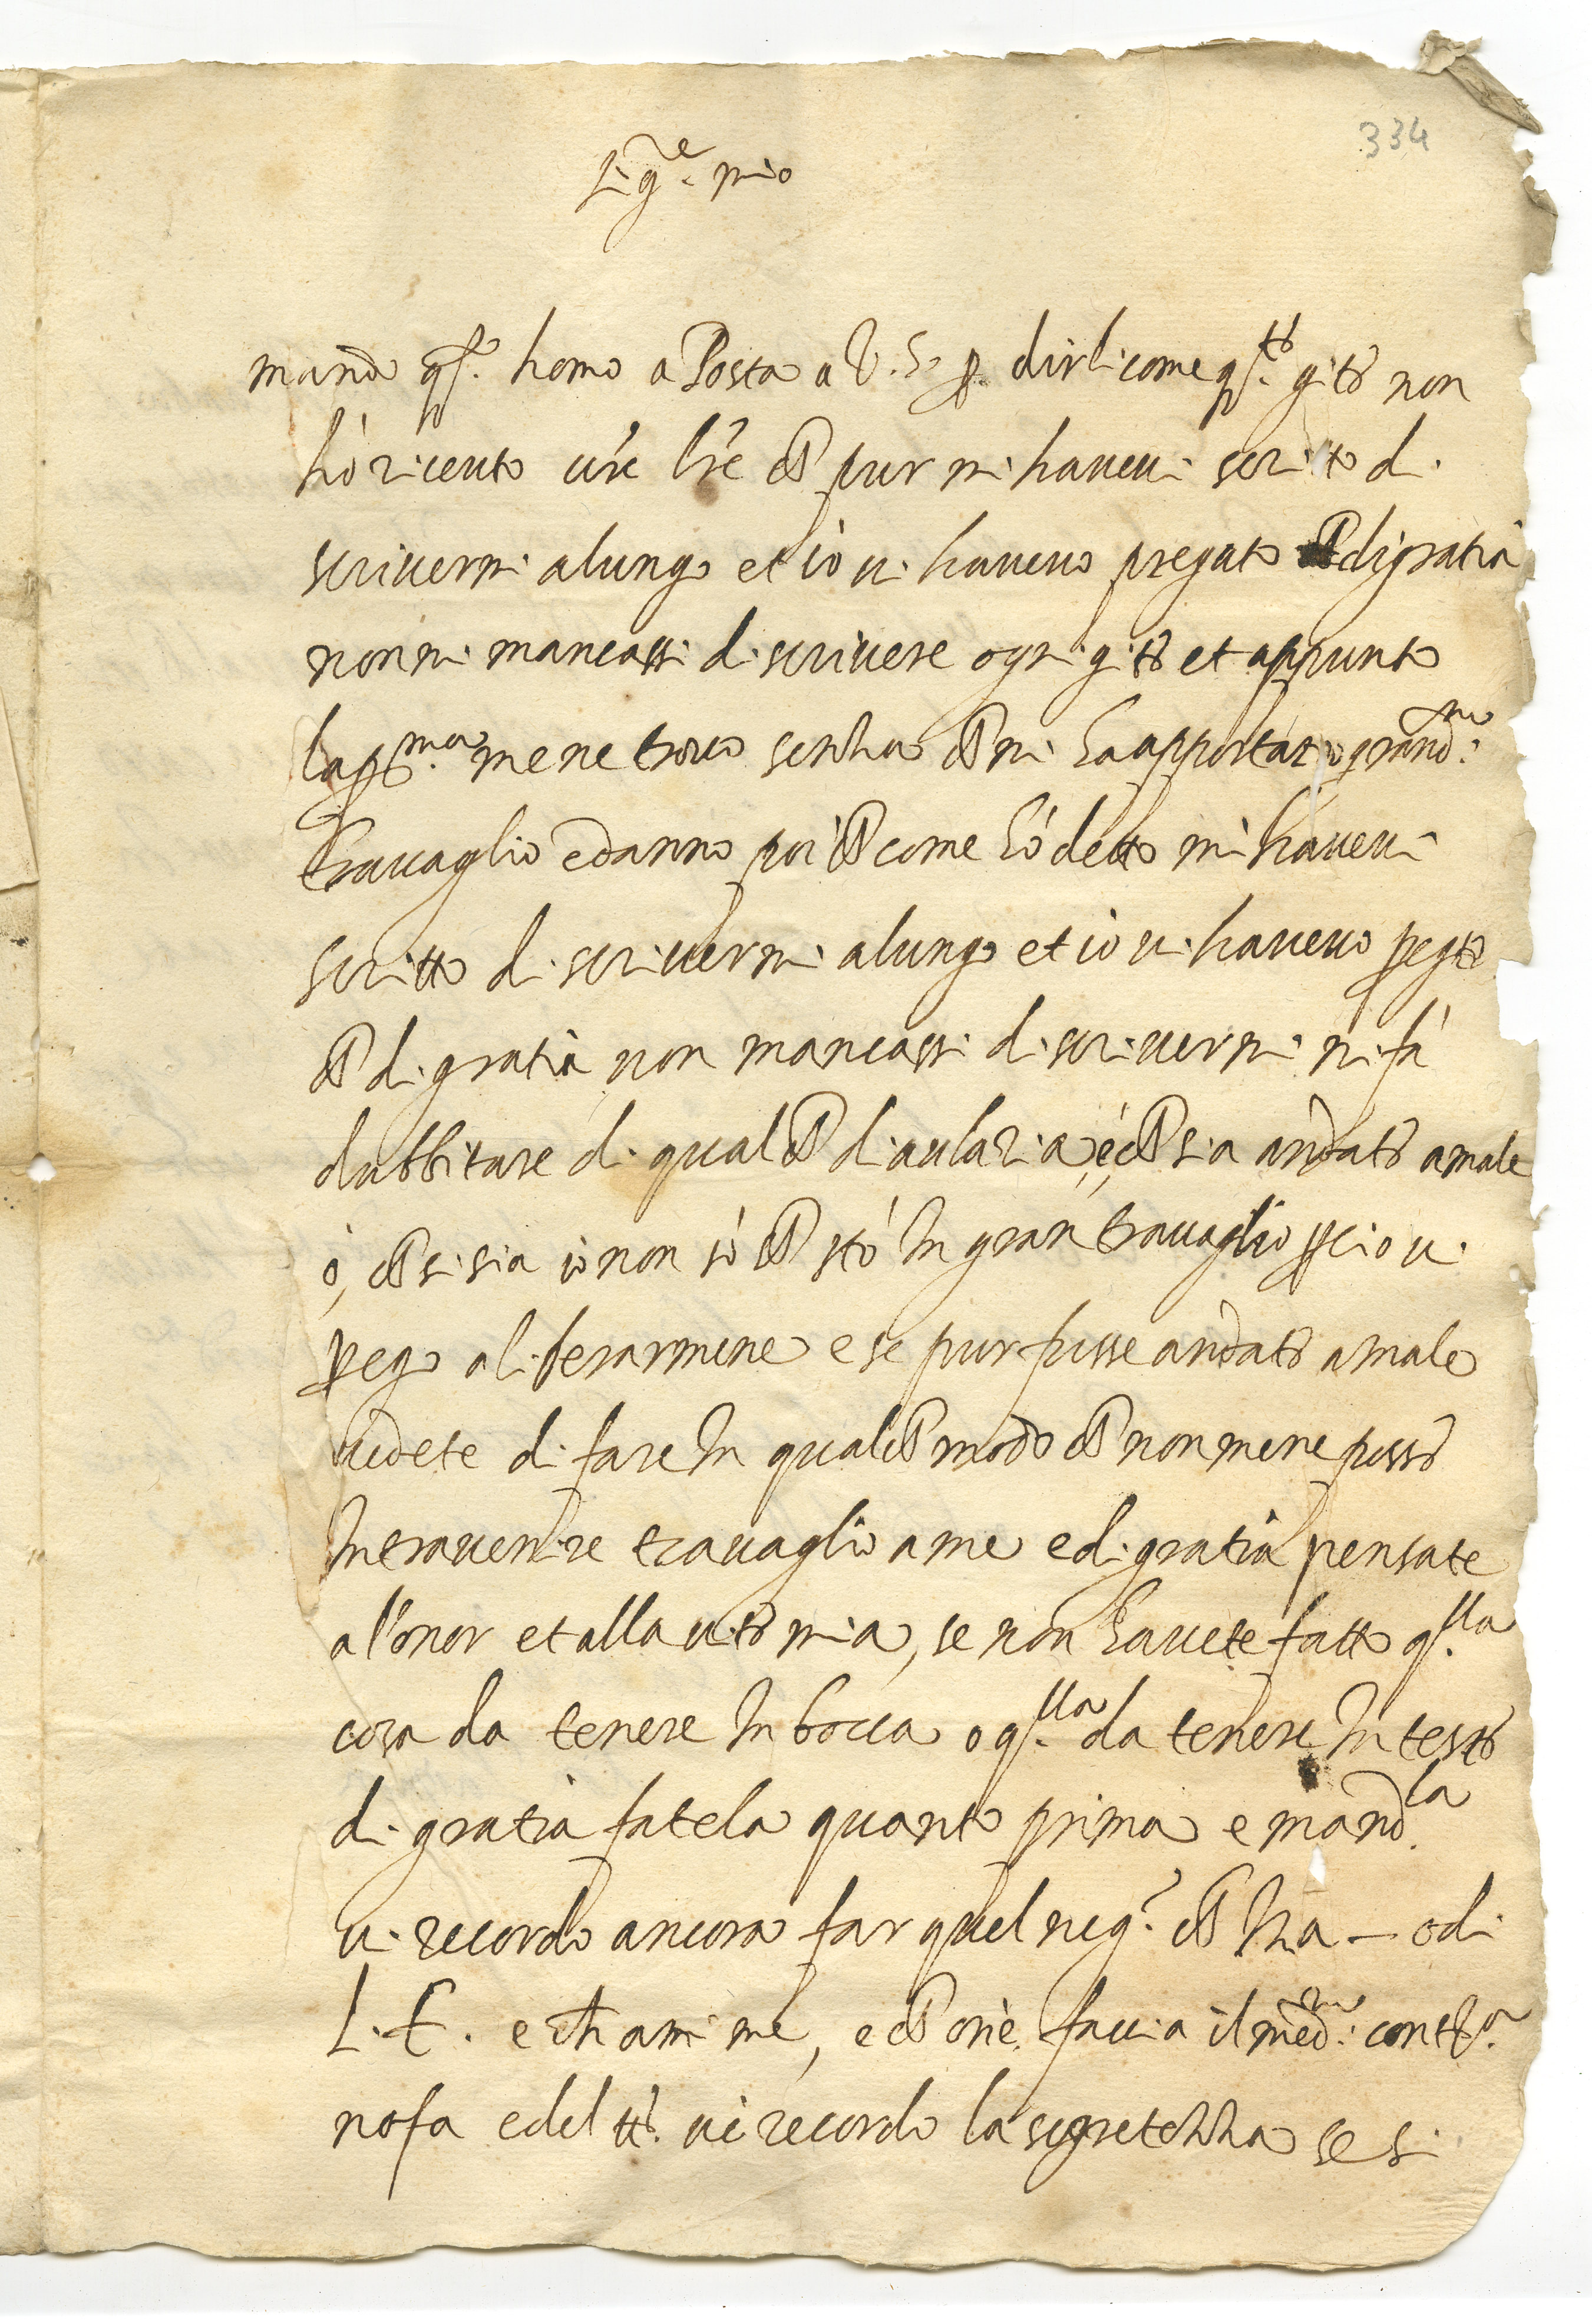 334
Sig.re mio
mando qs. homo a Posta a V. S. p. dirli come qs.to gito non
hó riceuto ure lre ch pur mi haueui scritto di
scriuermi alungo et io ui haueuo pregato ch digratia
non mi mancassi di scriuere ogni gito et appunto
la pma. me ne trouo senza ch mi ha apportato grandmo.
trauaglio e danno poi ch come hó detto mi haueui
scritto di scriuermi alungo et io ui haueuo pegto
ch di gratia non mancassi di scriuermi mi fà
dubbitare di qualch diaularia, è ch sia andato amale
ó, ch si sia io non só ch stó In gran trauaglio pciò ui
pego a liberarmene e se pur fusse andato amale
uedete di fare In qualch modo ch non mene possi
Intrauenire trauaglio a me e di gratia pensate
al'onor et alla uita mia, se non hauete fatto q.lla
cosa da tenere In bocca o q.lla da tenere In testa
di gratia fatela quanto prima e mand.la
ui recordo ancora far quel neg.o ch — odi
L. C. e ch ami me, e ch faccia il medmo.
nosa e del tto. ui recordo la segretezza se si